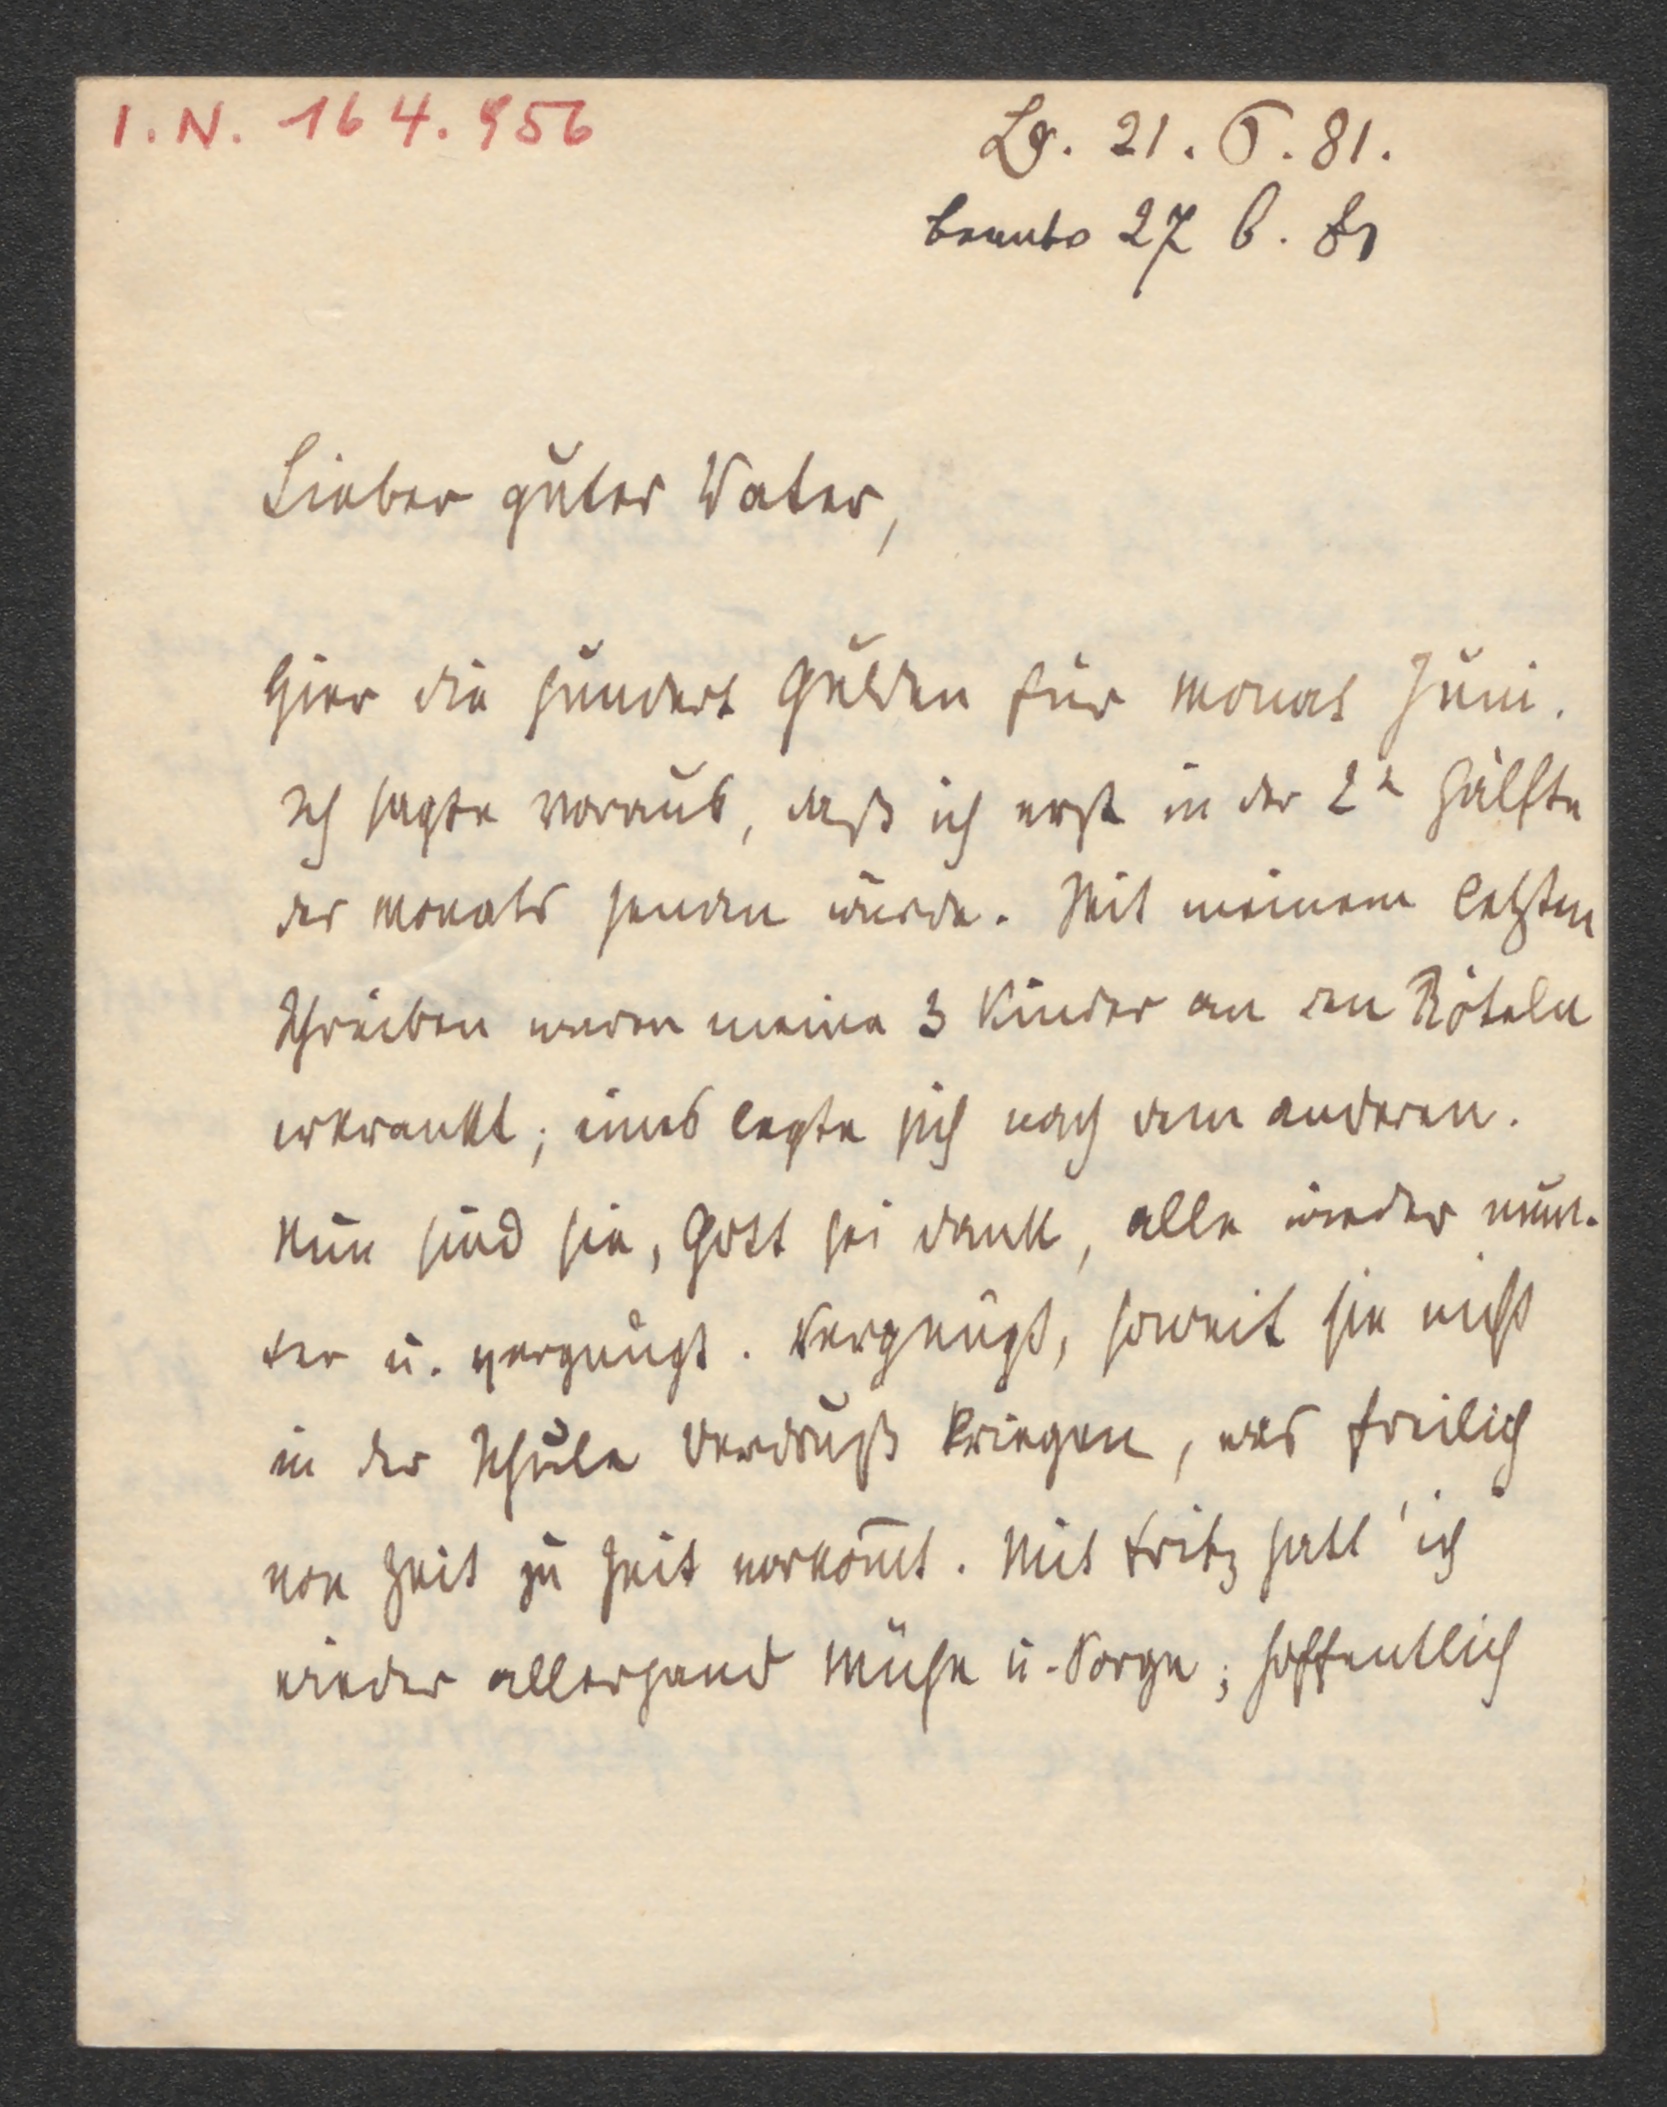 I.N. 164.956
Lg. 21. 6. 81.
beantw 27 6. 81
Lieber guter Vater,
Hier die hundert Gulden für Monat Juni.
Ich sagte voraus, daß ich erst in der 2n Hälfte
des Monats senden würde. Seit meinem letzten
Schreiben waren meine 3 Kinder an den Röteln
erkrankt; eines legte sich nach dem anderen.
Nun sind sie, Gott sei dank, alle wieder mun-
ter u. vergnügt. Vergnügt, soweit sie nicht
in der Schule Verdruß kriegen, was freilich
von Zeit zu Zeit vorkom̄t. Mit Fritz hatt' ich
wieder allerhand Mühe u. Sorge; hoffentlich